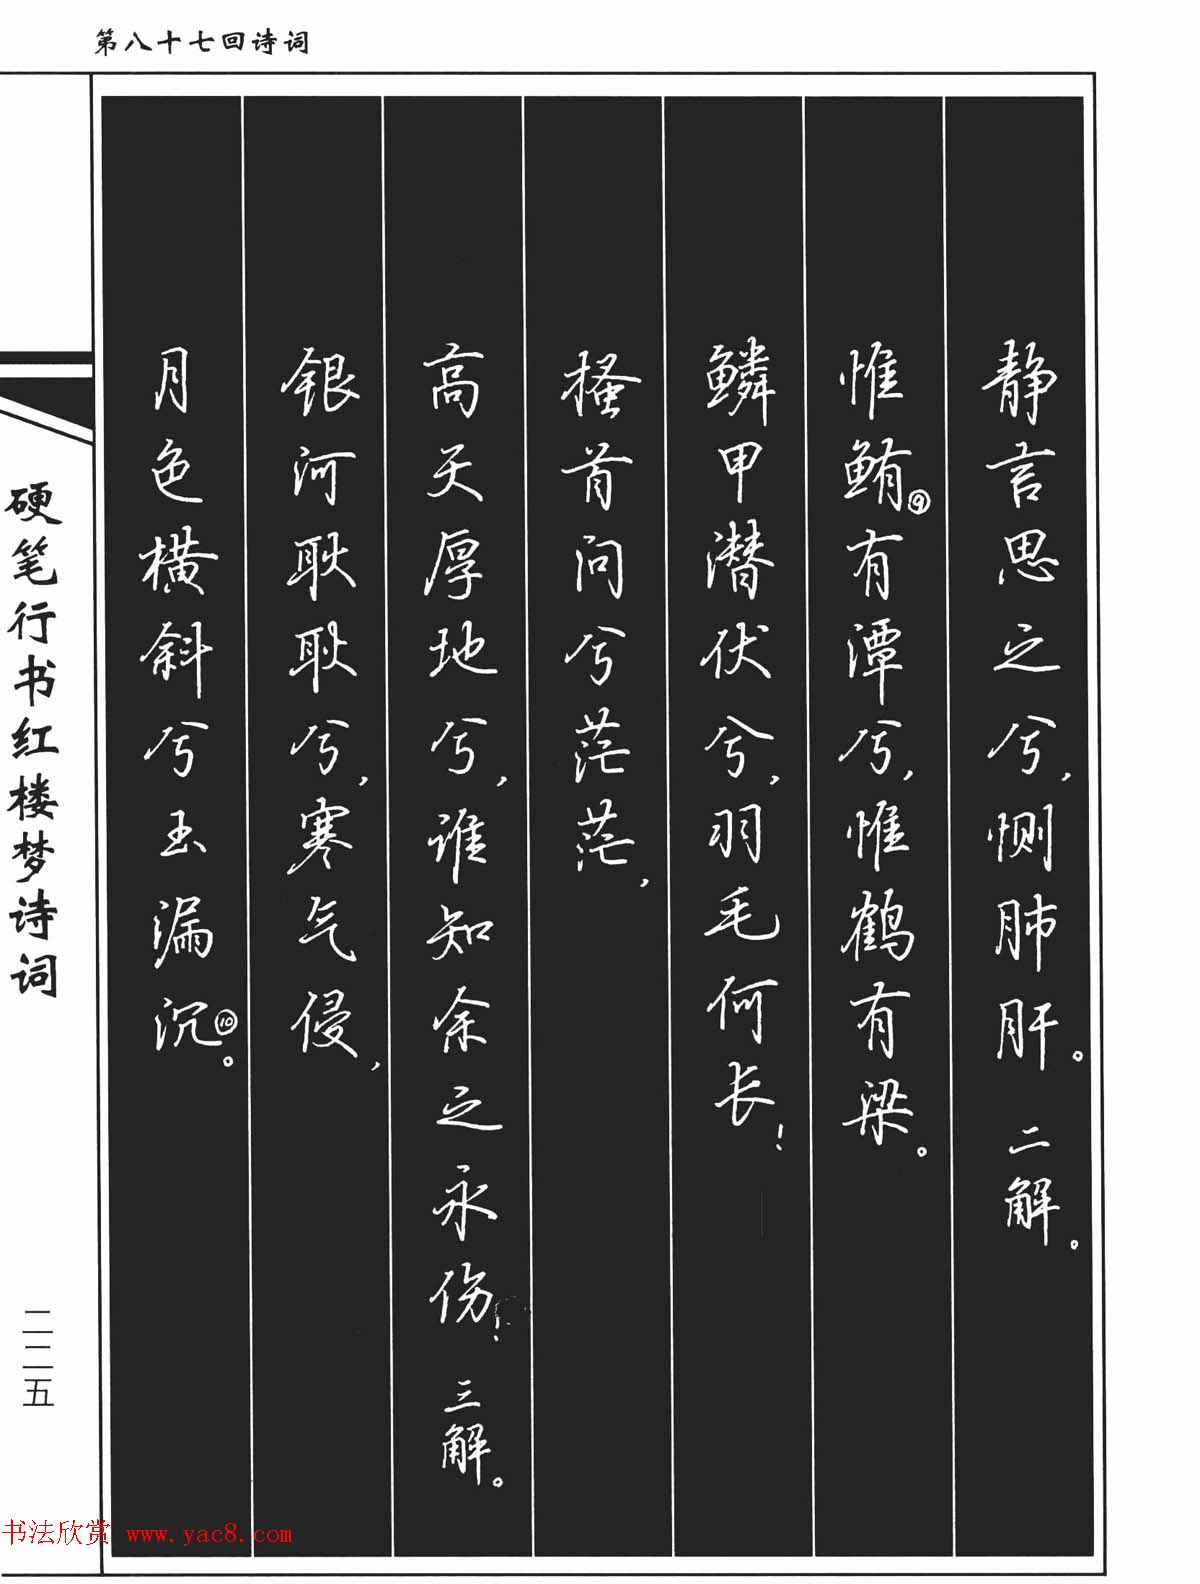 第八十七回诗词
静言思之兮，恻肺肝。二解。
惟鲔⑨有潭兮，惟鹤有梁。
鳞甲潜伏兮，羽毛何长！
搔首问兮茫茫，
高天厚地兮，谁知余之永伤！三解。
银河耿耿兮，寒气侵，
月色横斜兮玉漏沉⑩。
硬笔行书红楼梦诗词
二二五
书法欣赏 www.yac8.com